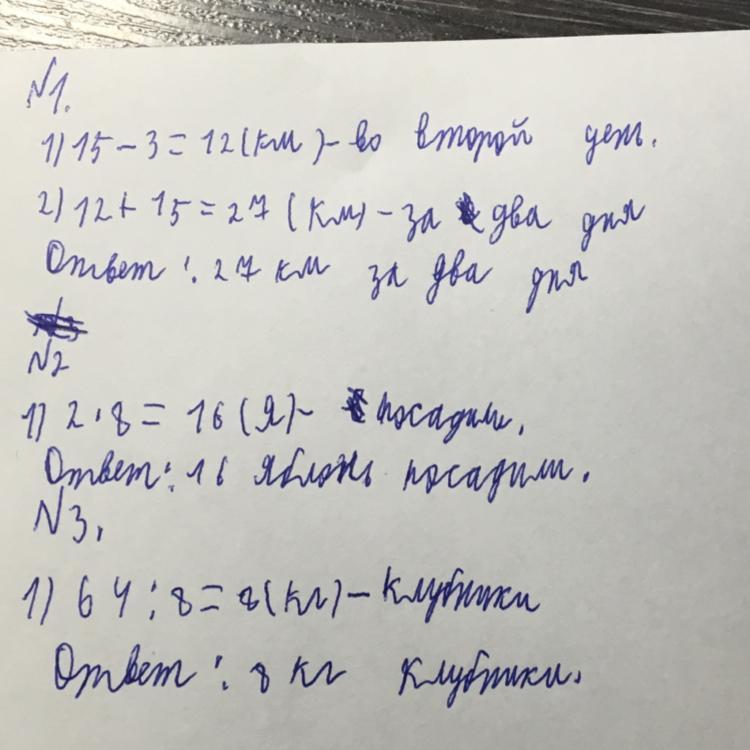 №1.
1) 15 - 3 = 12 (км) - во второй день.
2) 12 + 15 = 27 (км) - за два дня
Ответ: 27 км за два дня
№2
1) 2 · 8 = 16 (Я) - посадили.
Ответ: 16 яблонь посадили.
№3.
1) 64 : 8 = 8 (кг) - клубники
Ответ: 8 кг клубники.